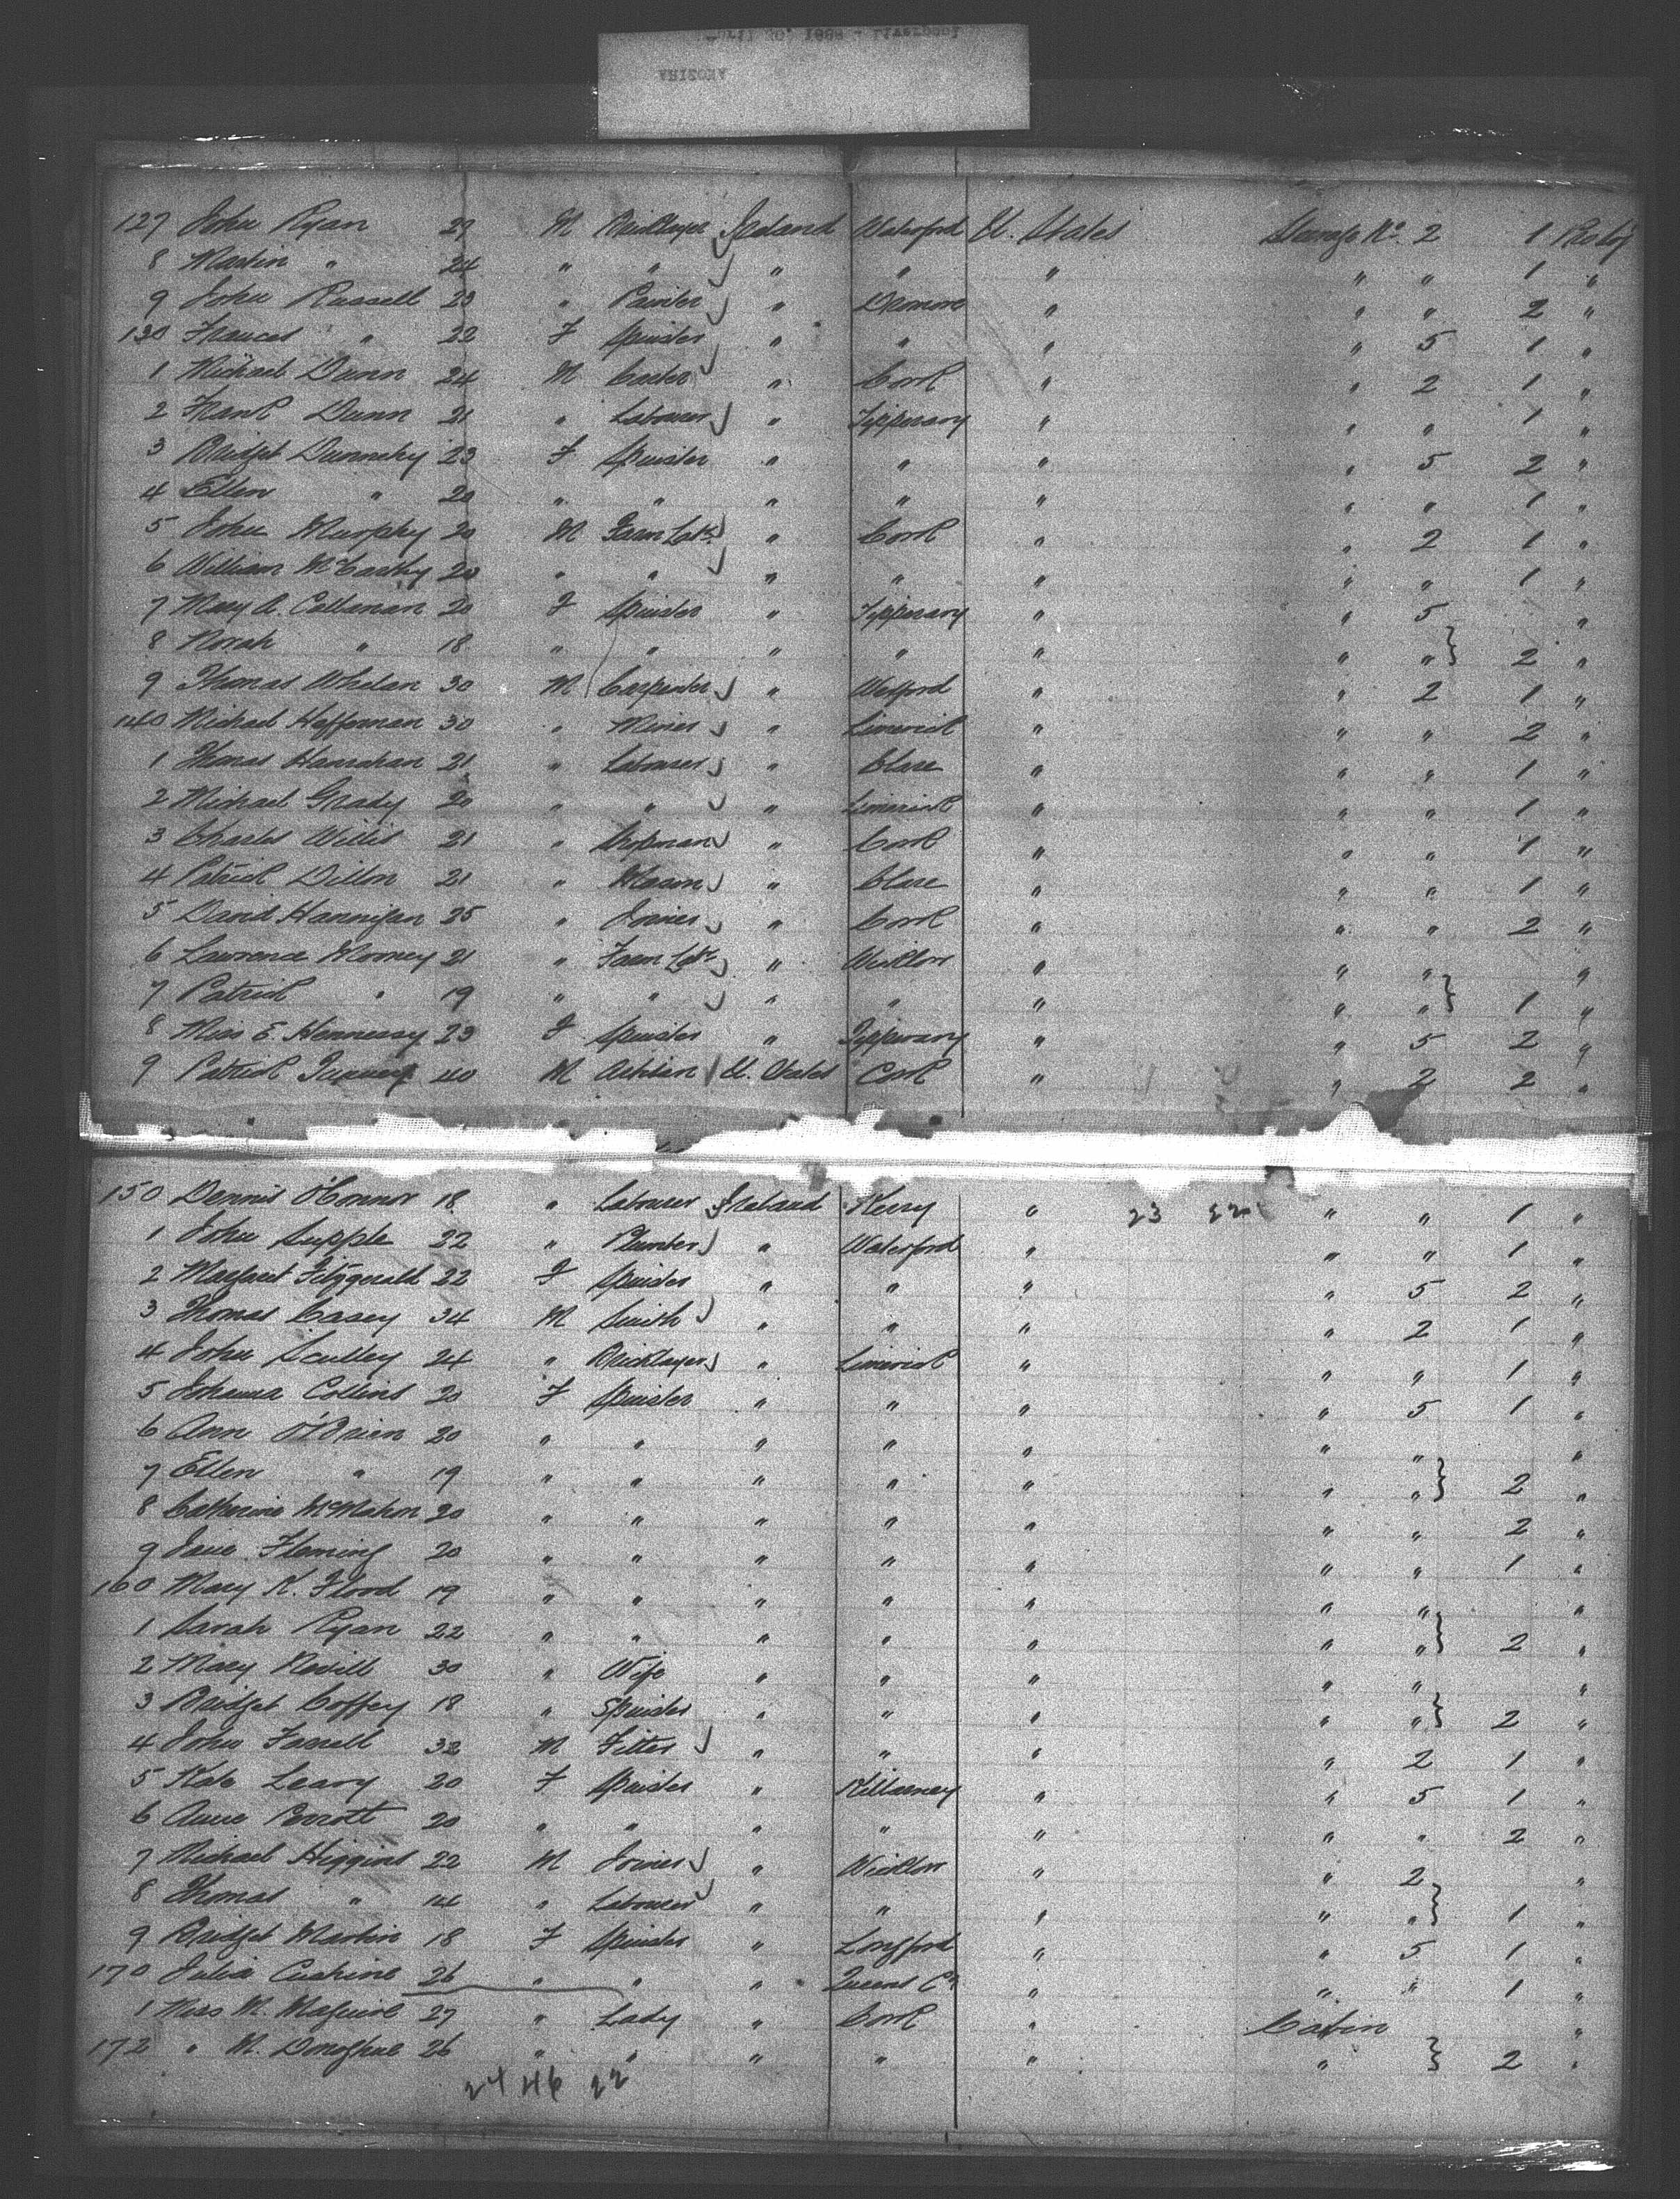 ARIZONA
127 John Ryan 29 M Bricklayer Ireland Waterford U. States Steerage No. 2 1
8 Martin " 24 " " " " " " " 1 "
9 John Russell 23 " Painter " " " " 2 "
130 Frances " 22 F Spinster " " " " 5 1 "
1 Michael Dunn 24 M " Cork " " 2 1 "
2 Frank Dunn 21 " Labourer " Tipperary " " " 1 "
3 Bridget 23 F Spinster " " " " 5 2 "
4 Ellen " 20 " " " " " " " 1 "
5 John Murphy 20 M Farm Labr " Cork " " 2 1 "
6 William McCarthy 20 " " " " " " " 1 "
7 Mary A. Callanan 20 F Spinster " Tipperary " " 5 "
8 Norah " 18 " " " " " " " } 2 "
9 Thomas Whelan 30 M Carpenter " Wexford " " 2 1 "
140 Michael Heffernan 30 " Miner " Limerick " " " 2 "
1 Thomas Hanrahan 21 " Labourer " Clare " " " 1 "
2 Michael Grady 20 " " " Limerick " " " 1 "
3 Charles Willis 21 " Shopman " Cork " " " 1 "
4 Patrick Dillon 21 " Mason " Clare " " " 1 "
5 David Hannigan 25 " Joiner " Cork " " " 2 "
6 Lawrence Mooney 21 " Farm Labr " Wicklow " " " "
7 Patrick " 19 " " " " " " " } 1 "
8 Miss E. Hennessy 23 F Spinster " Tipperary " " 5 2 "
9 Patrick 40 M Artisan U. States Cork " " 2 2 "
150 Dennis O'Connor 18 " Labourer Ireland Kerry " 23 22 " " 1 "
1 John Supple 22 " Plumber " Waterford " " " 1 "
2 Margaret Fitzgerald 22 F Spinster " " " " 5 2 "
3 Thomas Casey 34 M Smith " " " " 2 1 "
4 John Sculley 24 " Bricklayer " Limerick " " " 1 "
5 Johanna Collins 20 F Spinster " " " " 5 1 "
6 Ann O'Brien 20 " " " " " " " "
7 Ellen " 19 " " " " " " " } 2 "
8 Catherine McMahon 20 " " " " " " " 2 "
9 Jane Fleming 20 " " " " " " " 1 "
160 Mary K. Flood 19 " " " " " " " "
1 Sarah Ryan 22 " " " " " " " } 2 "
2 Mary Nevill 30 " Wife " " " " " "
3 Bridget Coffey 18 " Spinster " " " " " } 2 "
4 John Farrell 32 M Fitter " " " " 2 1 "
5 Kate Leary 20 F Spinster " Killarney " " 5 1 "
6 Anne Perrott 20 " " " " " " " 2 "
7 Michael Higgins 22 M Joiner " Wicklow " " 2 "
8 Thomas " 14 " Labourer " " " " " } 1 "
9 Bridget Martin 18 F Spinster " Longford " " 5 1 "
170 Julia 26 " " " Queens Co " " " 1 "
1 Miss M. Maguire 27 " Lady " Cork " Cabin "
172 " M. Donoghue 26 " " " " " " } 2 "
24 46 22